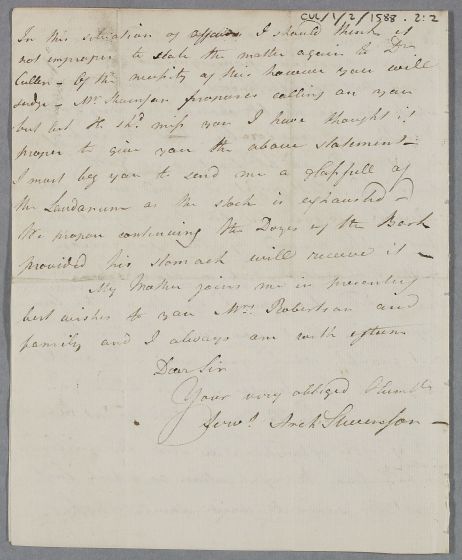 CUL/1/2/1588 . 2:2
In this situation of affairs I should think it
not improper to state the matter again to Dr.
Cullen - Of the necessity of this however you will
Judge - Mr. proposes calling on you
but lest he shd. miss you I have thought it
proper to give you the above statement -
I must beg you to send me a Glassfull of
the Laudanum as the stock is exhausted -
We propose continuing the Dozes of the Bark
provided his stomach will receive it -
My Mother joins me in presenting
best wishes to you Mrs. Robertson and
family, and I always am with esteem
Dear Sir
Your very obliged Humble
Servt. Arch Stevenson -